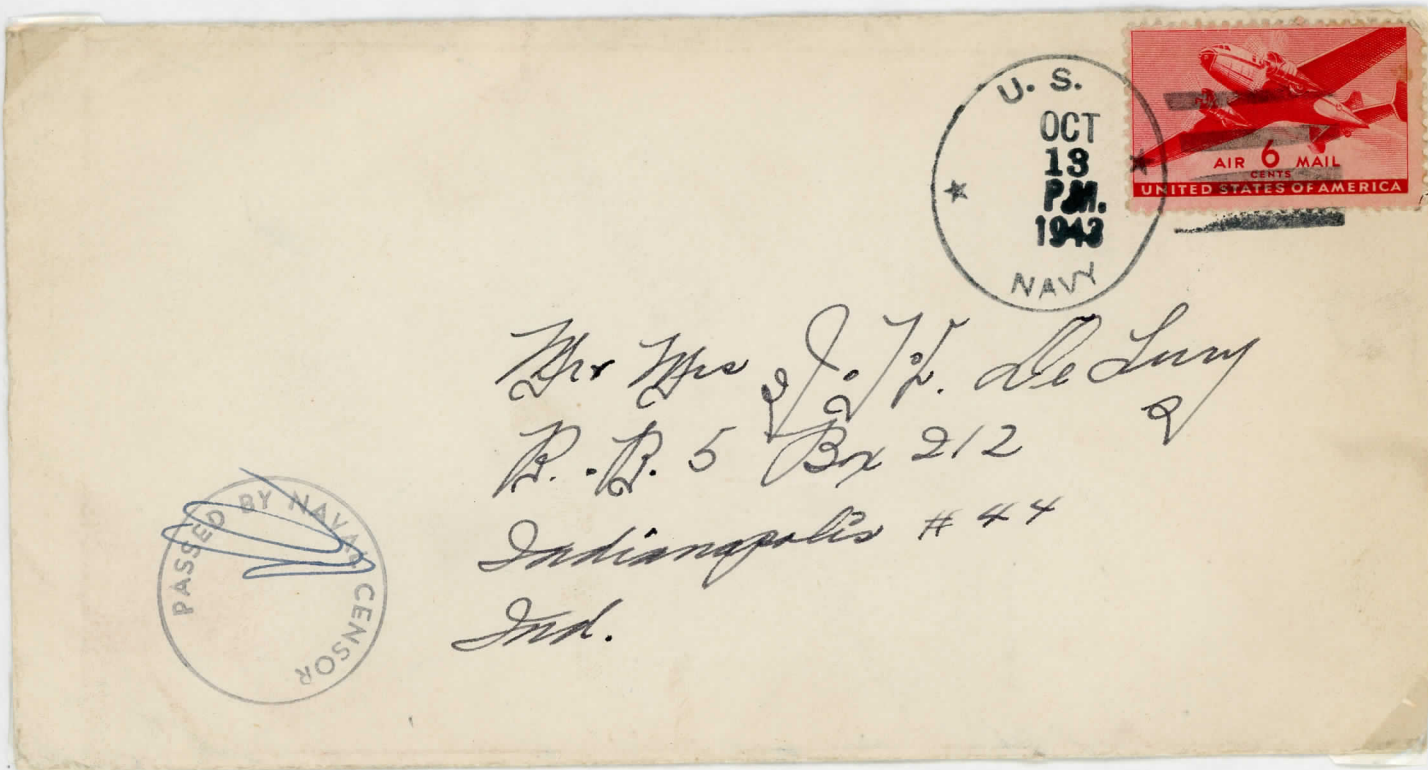 U. S.
OCT
13
P.M.
1943
NAVY
AIR 6 MAIL
CENTS
UNITED STATES OF AMERICA
Mr Mrs J. H. De Lury
R. R. 5 Box 212
Indianapolis # 44
Ind.
PASSED BY NAVAL CENSOR